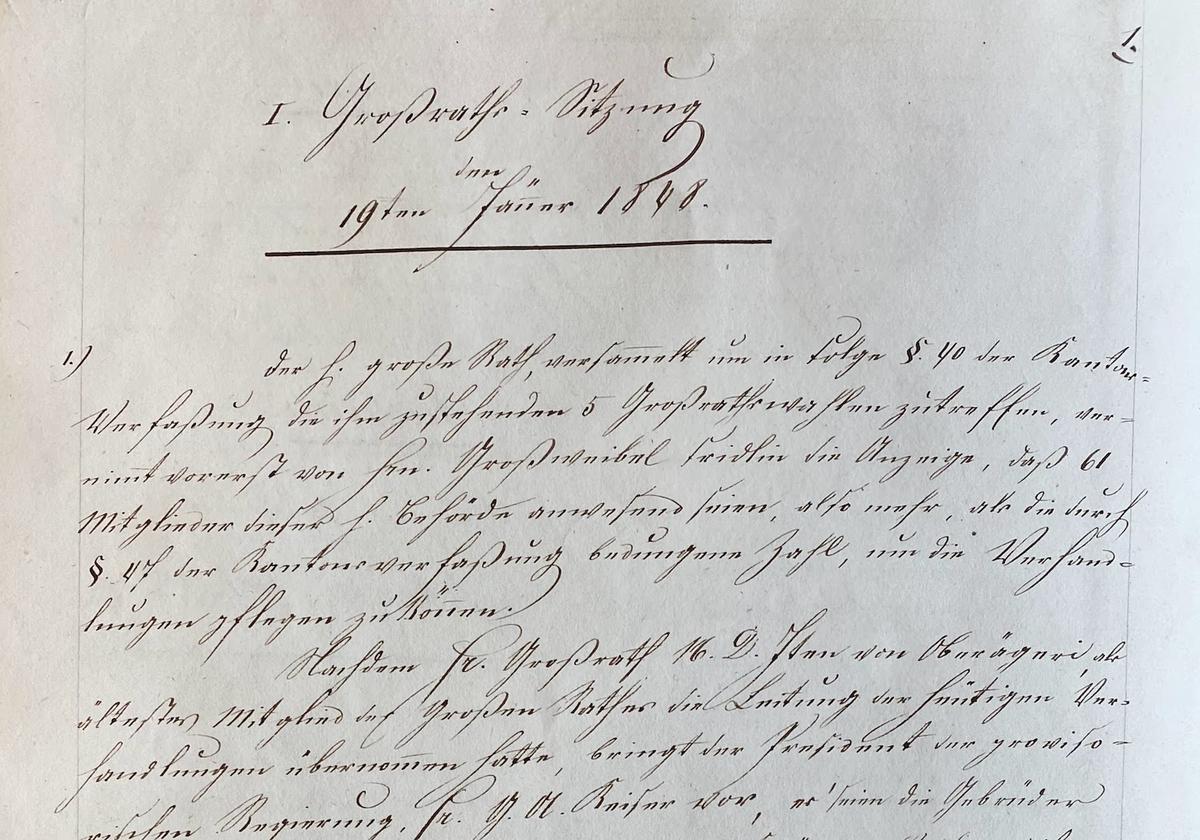 1.
I. Großraths-Sitzung
den
19ten Jäñer 1848.
1.) Der h. große Rath, versam̅elt um in Folge §. 40 der Kantons-
Verfaßung die ihm zustehenden 5 Großrathswahlen zutreffen, ver-
nim̅t vorerst von Hrn. Großweibel Fridlin die Anzeige, daß 61
Mitglieder dieser h. Behörde anwesend seien, also mehr, als die durch
§. 47 der Kantonsverfaßung bedungene Zahl, um die Verhand-
lungen pflegen zu kön̅en.
Nachdem Hr. Großrath M. D. Iten von Oberägeri, als
ältestes Mitglied des Großen Rathes die Leitung der heütigen Ver-
handlungen übernom̅en hatte, bringt der President der proviso-
rischen Regierung, Hr. G. A. Keiser vor, es seien die Gebrüder